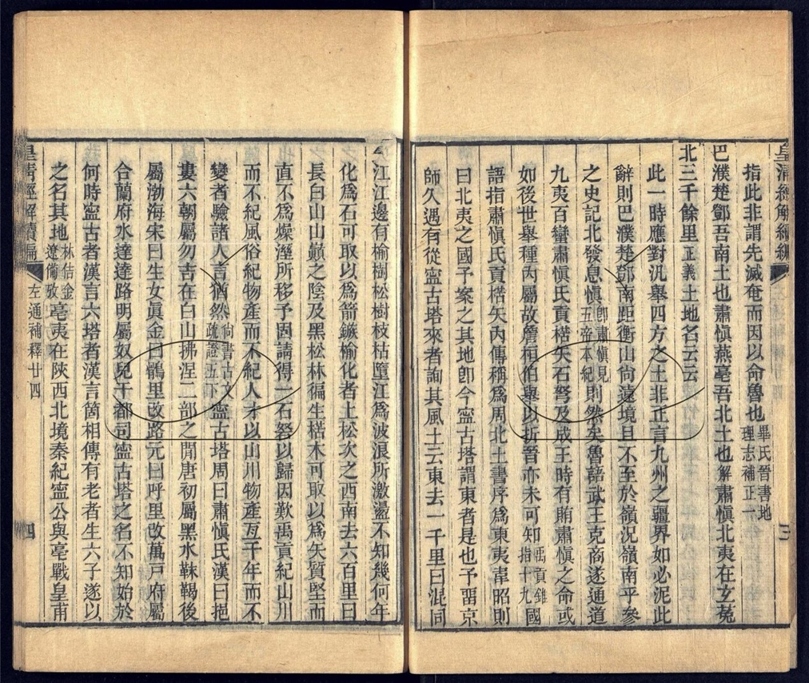 指此非謂先滅奄而因以命魯也畢氏晉書地理志補正一
巴濮楚鄧吾南土也肅愼燕亳吾北土也解肅愼北夷在玄菟
北三千餘里正義土地名云云
此一時應對汎舉四方之土非正言九州之疆界如必泥此
辭則巴濮楚鄧南距衡山尙遠境且不至於嶺況嶺南乎參
之史記北發息愼卽肅愼見五帝本紀則然矣魯語武王克商遂通道
九夷百蠻肅愼氏貢楛矢石砮及成王時有賄肅愼之命或
如後世舉種內屬故詹桓伯舉以折晉亦未可知禹貢錐指十九國
語指肅愼氏貢楛矢內傳稱爲周北土書序爲東夷韋昭則
曰北夷之國予案之其地卽今寧古塔謂東者是也予畱京
師久遇有從寧古塔來者詢其風土云東去一千里曰混同
江江邊有榆樹松樹枝枯墮江爲波浪所激盪不知幾何年
化爲石可取以爲箭鏃榆化者上松次之西南去六百里曰
長白山山巔之陰及黑松林徧生楛木可取以爲矢質堅而
直不爲燥溼所移予因請得一石砮以歸因歎禹貢紀山川
而不紀風俗紀物產而不紀人才以山川物產亙千年而不
變者驗諸人言猶然尙書古文疏證五下寧古塔周曰肅愼氏漢曰挹
婁六朝屬勿吉在白山拂涅二部之閒唐初屬黑水靺鞨後
屬渤海宋曰生女眞金曰鶻里改路元曰呼里改萬戶府屬
合蘭府水達達路明屬奴兒干都司寧古塔之名不知始於
何時寧古者漢言六塔者漢言箇相傳有老者生六子遂以
之名其地林佶金遼備攷亳夷在陝西北境秦紀寧公與亳戰皇甫
皇淸經解續編
左通補釋廿四
四